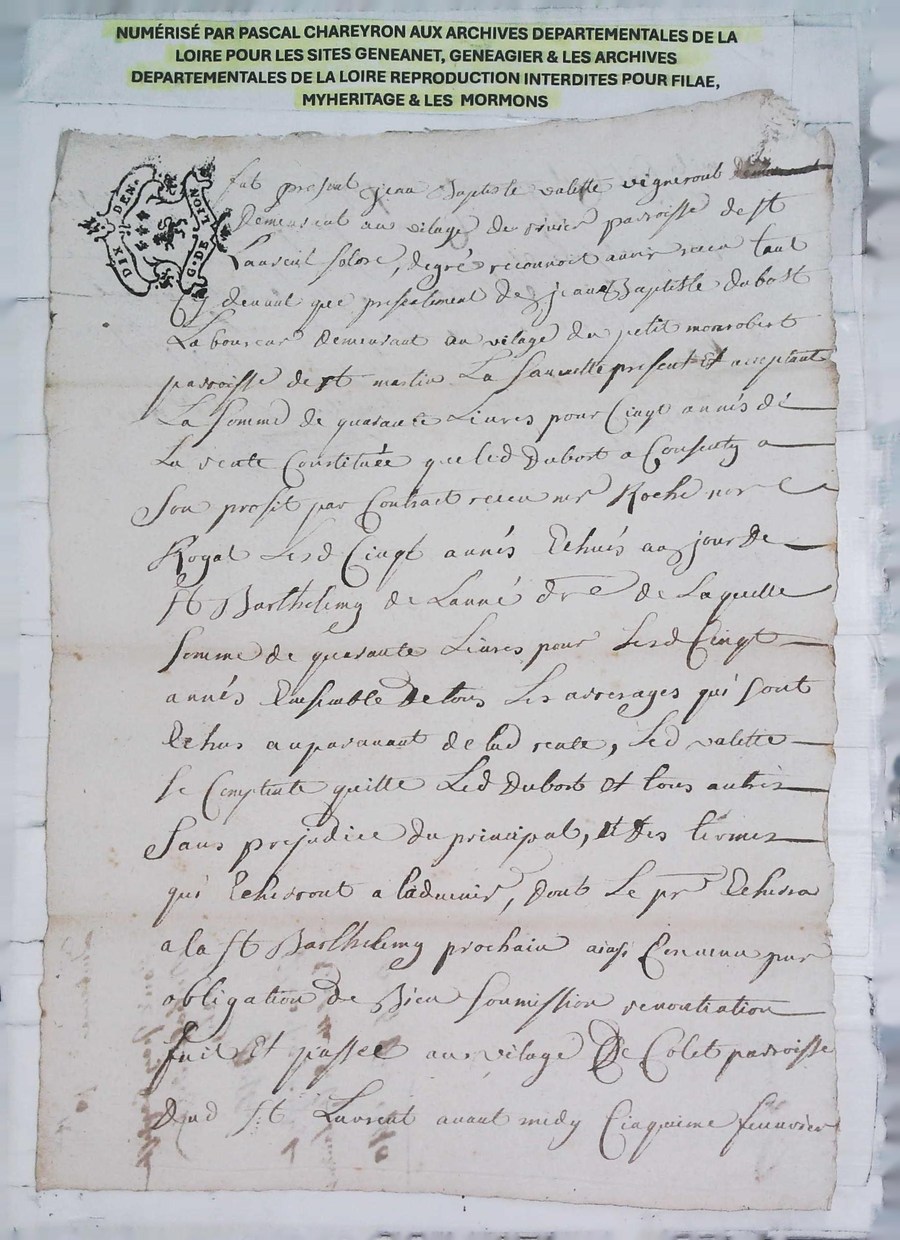 NUMÉRISÉ PAR PASCAL CHAREYRON AUX ARCHIVES DEPARTEMENTALES DE LA
LOIRE POUR LES SITES GENEANET, GENEAGIER & LES ARCHIVES
DEPARTEMENTALES DE LA LOIRE REPRODUCTION INTERDITES POUR FILAE,
MYHERITAGE & LES MORMONS
DIX DEN.
G. DE LION
fut present jean Baptiste valette vigneront
Demeurent au vilage de paroisse de st
Laureut Solore, de gré reconnoit auoir receu tant
Cy deuant que presentement de jean Baptiste dubost
Laboureur demeurant au vilage du petit monrobert
paroisse de st martin La Sauuette present Et acceptant
La somme de quarante Liures pour Cinqt annés de
La rente Constituée que led Dubost a Consenty a
Son profit par Contract receu mr Roche nor
Royal Lesd Cinqt annés Echués au jour de
st Barthelemy de Lanné dre de Laquelle
somme de quarante Liures pour Lesd Cinqt
annés Ensemble de tous Les arrerages qui sont
Echus auparauant de lad rente, Led valette
se Comptente quitte Led Dubost et tous autres
Sans prejudice du principal, et des termes
qui Echeront a laduenir, dont Le pr Echera
a la st Barthelemy prochain ainsi Conuenu par
obligation de Bien soumission renontiation
fait Et passee au vilage De Colet paroisse
dud st Laurent auant midy Cinquieme feuurier